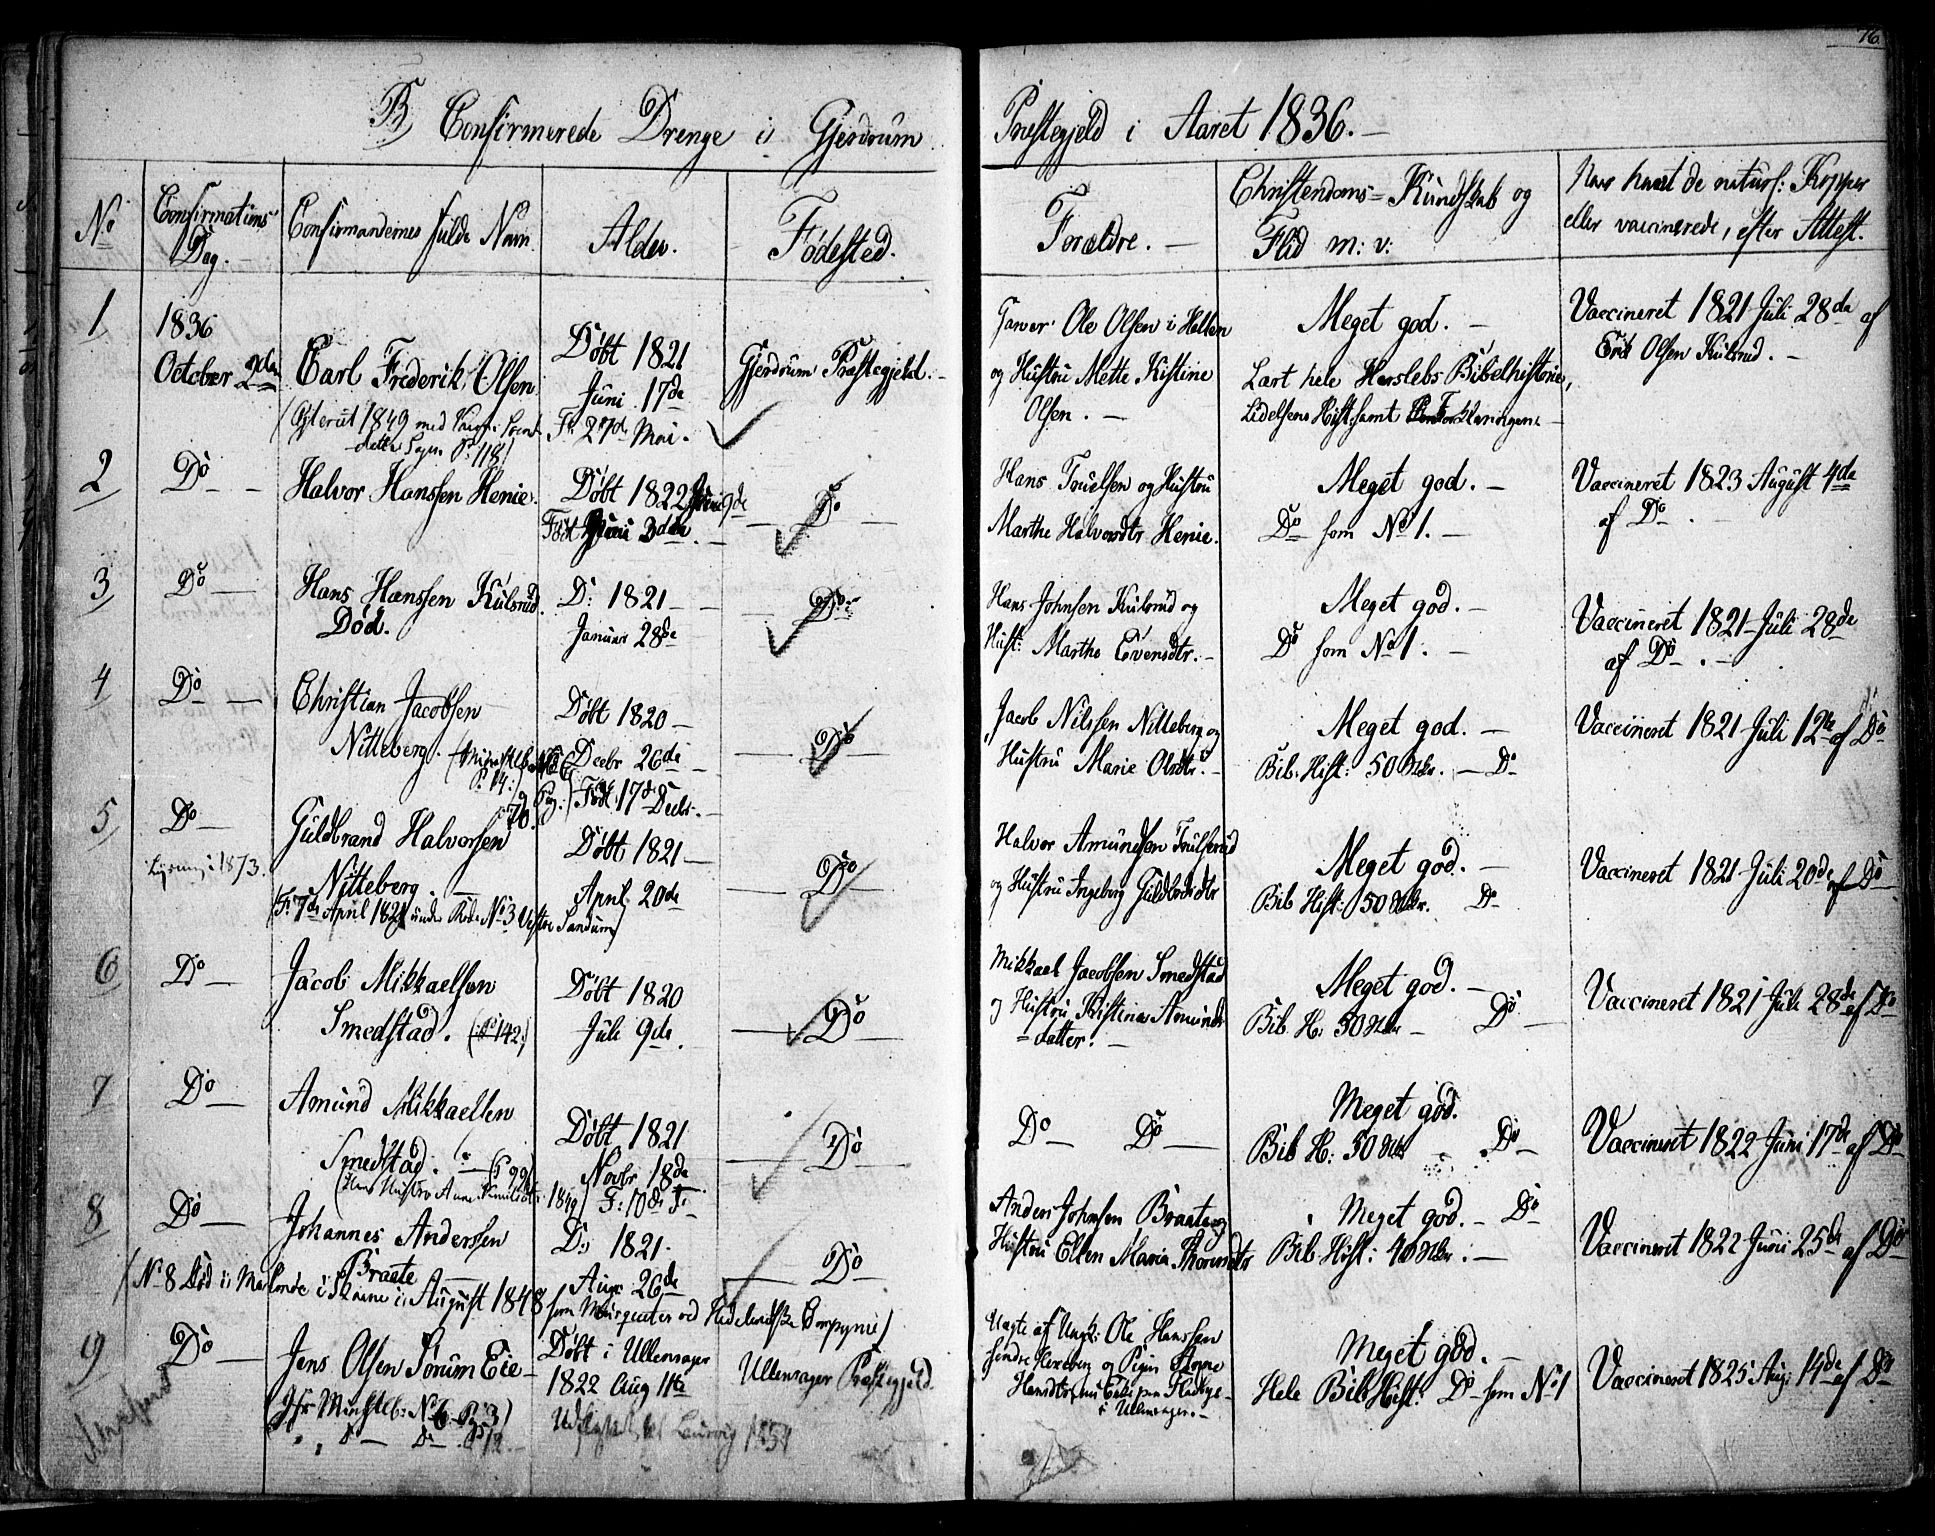 76
B) Confirmerede Drenge i Gjerdrum Præstegjeld i Aaret 1836.
No
Confirmations Dag.
Confirmandernes fulde Navn.
Alder.
Fødested.
Forældre.
Christendoms-Kundskab og
Flid m: v:
Naar havt de naturl: Kopper
eller vaccinerede, efter Attest.
1
1836
October 2den
Carl Frederik Olsen
1849 med
P: 118)
Døbt 1821
Juni 17de
F: 27de Mai.
Gjerdrum Præstegjeld.
Ole Olsen i
og Hustru Mette Kistine
Olsen.
Meget god.
Lært hele Herslebs Bibelhistorie,
Lidelsens Hist: samt Forklaringen
Vaccineret 1821 Juli 28de af
Erik Olsen Kulsrud.
2
Do
Halvor Hanssen Henie.
Døbt 1822 Juni 9de
Født Juni 3den
Do
Hans Truelsen og Hustru
Marthe Halvorsdtr Henie.
Meget god.
Do som No 1.
Vaccineret 1823 August 4de
af Do
3
Do
Hans Hanssen Kulsrud.
Død.
D: 1821
Januar 28de
Do
Hans Johnsen Kulsrud og
Hust: Marthe Evensdtr.
Meget god.
Do som No 1.
Vaccineret 1821 Juli 28de
af Do
4
Do
Christian Jacobsen
Nitteberg.
P: 14:)
Døbt 1820
Decbr 26de
Født 17de Decbr.
Do
Jacob Nilssen Nitteberg og
Hustru Marie Olsdtr.
Meget god.
Bib. Hist: 50 Do
Vaccineret 1821 Juli 12te af Do
5
Do
1873.
Guldbrand Halvorsen
Nitteberg.
(F: 7de April 1821 under No 3 Sandum)
Døbt 1821
April 20de
Do
Halvor Amundsen
og Hustru Ingeborg Guldbrdsdtr
Meget god.
Bib Hist: 50 Do
Vaccineret 1821 Juli 20de af Do
6
Do
Jacob Mikkaelsen
Smedstad. (P 142.)
Døbt 1820
Juli 9de
Do
Mikkael Jacobsen Smedstad
og Hustru Kistine Amunds-
datter.
Meget god.
Bib H: 50 Do
Vaccineret 1821 Juli 28de af Do
7
Do
Amund Mikkaelsen
Smedstad. (P 99)
Hustru Anne 1849)
Døbt 1821
Novbr 18de
F: 10de
Do
Do Do
Meget god.
Bib H: 50 Do
Vaccineret 1822 Juni 17de af Do
8
Do
Johannes Anderssen
Braate
(No 8 død i i Skaane i August 1848 som ved Compagnie)
D: 1821
Aug: 26de
Do
Anders Johnsen Braate og
Hustru Ellen Maria
Meget god. Do
Bib Hist: 40
Vaccineret 1822 Juni 25de af Do
9
Do
Jens Olsen Sørum Eie
No 6 P: 3)
Do Do P 12.
Døbt i Ullensager
1822 Aug 11te
1854
Ullensager Præstegjeld
Uægte af Ungk: Ole Hanssen
og Pigen Anne
Hansdtr,
i Ullensager.
Meget god.
Hele Bib Hist: Do som No 1
Vaccineret 1825 Aug: 14de af Do